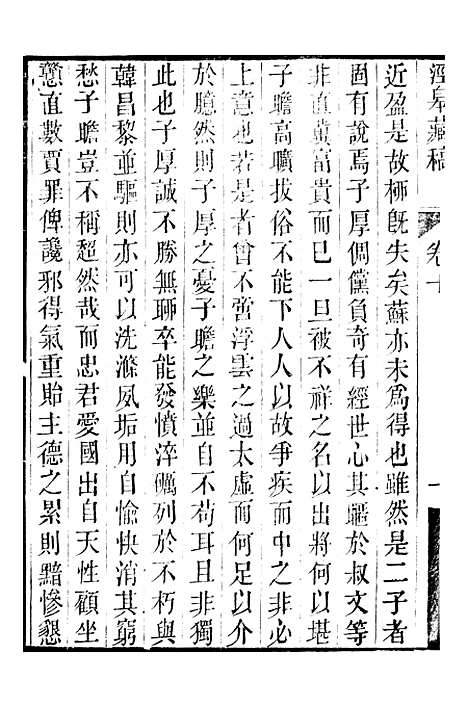 涇臯藏稿
卷十
一
近盈是故柳旣失矣蘇亦未爲得也雖然是二子者
固有說焉子厚倜儻負奇有經世心其暱於叔文等
非直冀富貴而已一旦被不祥之名以出將何以堪
子瞻高曠拔俗不能下人人以故爭疾而中之非必
上意也若是者曾不啻浮雲之過太虛而何足以介
於臆然則子厚之憂子瞻之樂並自不苟耳且非獨
此也子厚誠不勝無聊卒能發憤淬礪列於不朽與
韓昌黎並驅則亦可以洗滌夙垢用自愉快消其窮
愁子瞻豈不稱超然哉而忠君愛國出自天性顧坐
戇直數賈罪俾讒邪得氣重貽主德之累則黯慘懇